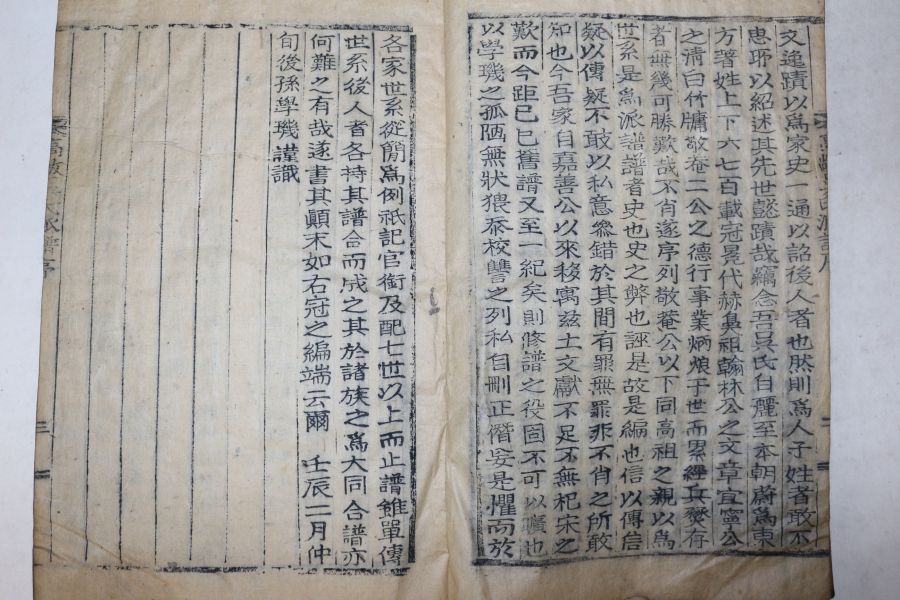 文遺蹟以爲家史一通以詔後人者也然則爲人子姓者敢不
思所以紹述其先世懿蹟哉竊念吾吳氏自麗至本朝蔚爲東
方著姓上下六七百載冠冕代赫鼻祖翰林公之文章宜寧公
之淸白竹牖敬菴二公之德行事業炳烺于世而累經兵燹存
者無幾可勝歎哉不肖遂序列敬菴公以下同高祖之親以爲
世系是爲派譜譜者史也史之弊也誣是故是編也信以傳信
疑以傳疑不敢以私意叅錯於其間有罪無罪非不肖之所敢
知也今吾家自嘉善公以來移寓玆土文獻不足不無杞宋之
歎而今距己巳舊譜又至一紀矣則修譜之役固不可以曠也
以學璣之孤陋無狀猥忝校讐之列私自刪正僭妄是懼而於
各家世系從簡爲例祇記官銜及配七世以上而止譜雖單傳
世系後人者各持其譜合而成之其於諸族之爲大同合譜亦
何難之有哉遂書其顚末如右冠之編端云爾 壬辰二月仲
旬後孫學璣謹識